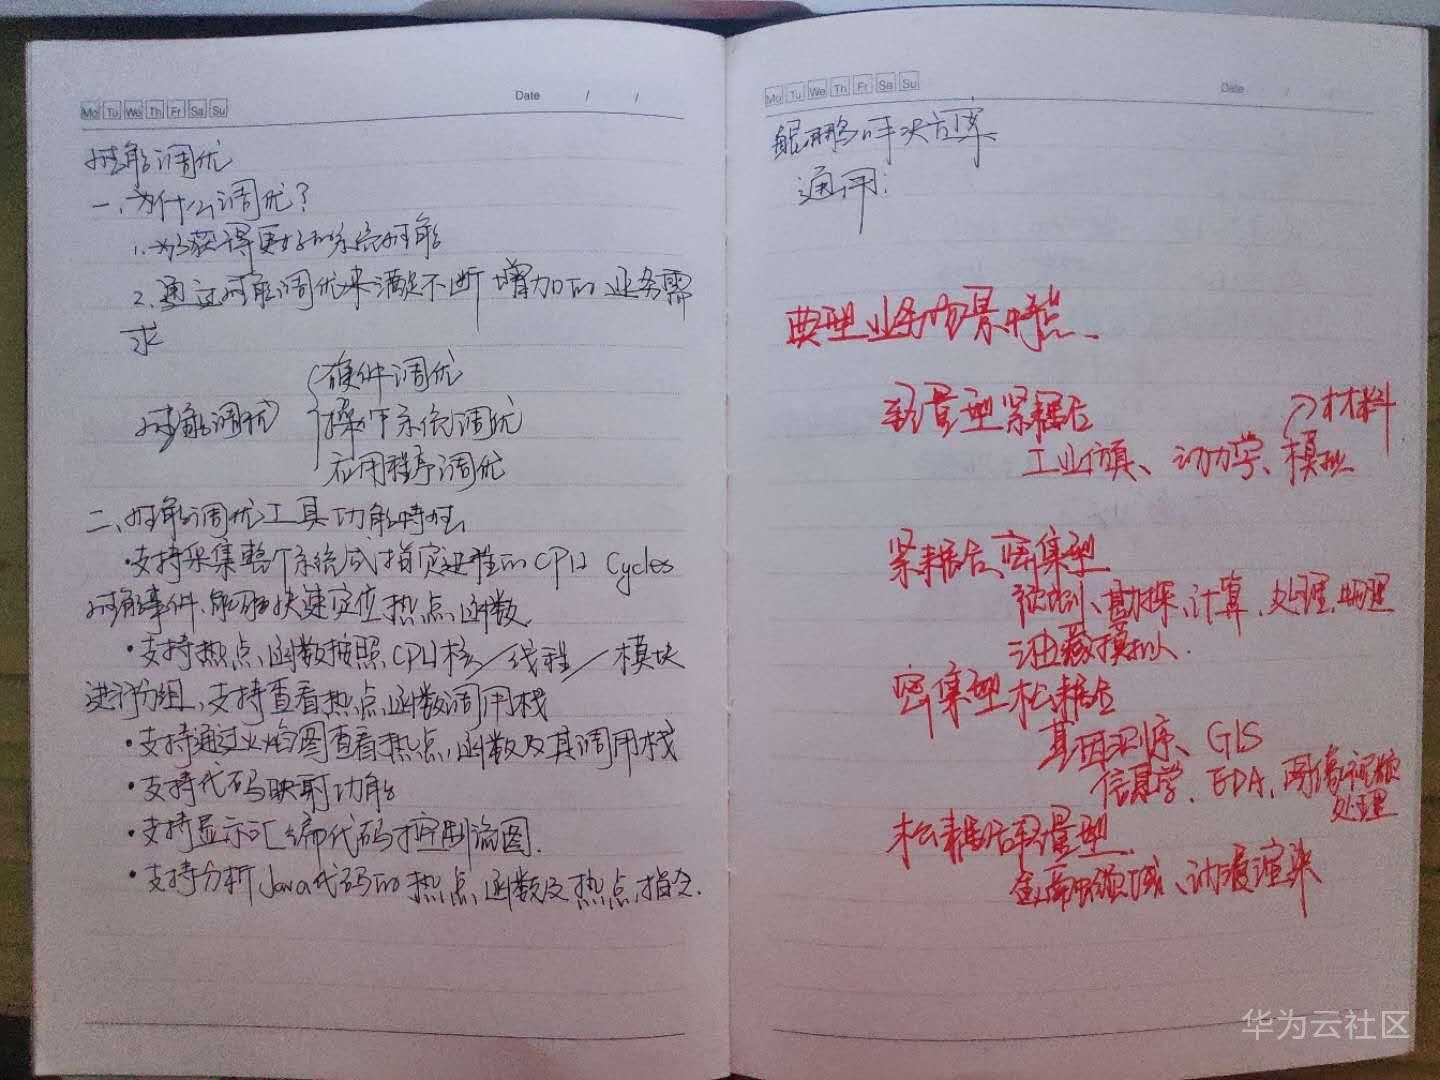 Mo Tu We Th Fr Sa Su Date / /
性能调优
一、为什么调优？
1.为了获得更好的系统性能
2.通过性能调优来满足不断增加的业务需
求
硬件调优
性能调优 操作系统调优
应用程序调优
二、性能调优工具功能特性
·支持采集整个系统或指定进程的CPU Cycles
性能事件、能够快速定位热点函数
·支持热点函数按照CPU核/线程/模块
进行分组,支持查看热点函数调用栈
·支持通过火焰图查看热点函数及其调用栈
·支持代码映射功能
·支持显示汇编代码控制流图.
·支持分析Java代码的热点函数及热点指令.
Mo Tu We Th Fr Sa Su Date
鲲鹏解决方案
通用:
典型业务场景特点
轻量型紧耦合
材料
工业仿真、动力学、模拟
紧耦合、密集型
预测、勘探、计算、处理、物理
油藏模拟.
密集型松耦合
基因测序、GIS
信息学、EDA、图像视频
处理
松耦合轻量型
金融领域、动漫渲染
华为云社区